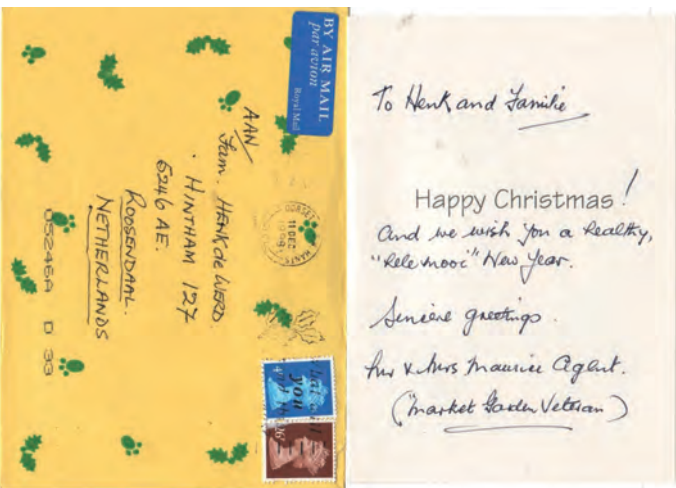 BY AIR MAIL
par avion
Royal Mail
AAN/
Fam. HENK de WERD.
HINTHAM 127
5246 AE.
ROOSENDAAL.
NETHERLANDS
DORSET
11 DEC
HANTS
05246A D 33
you
To Henk and Familie
Happy Christmas!
And we wish you a healthy,
"Hele mooi" New Year.
Sincere greetings.
Mr & Mrs Maurice Agent.
("Market Garden Veteran)